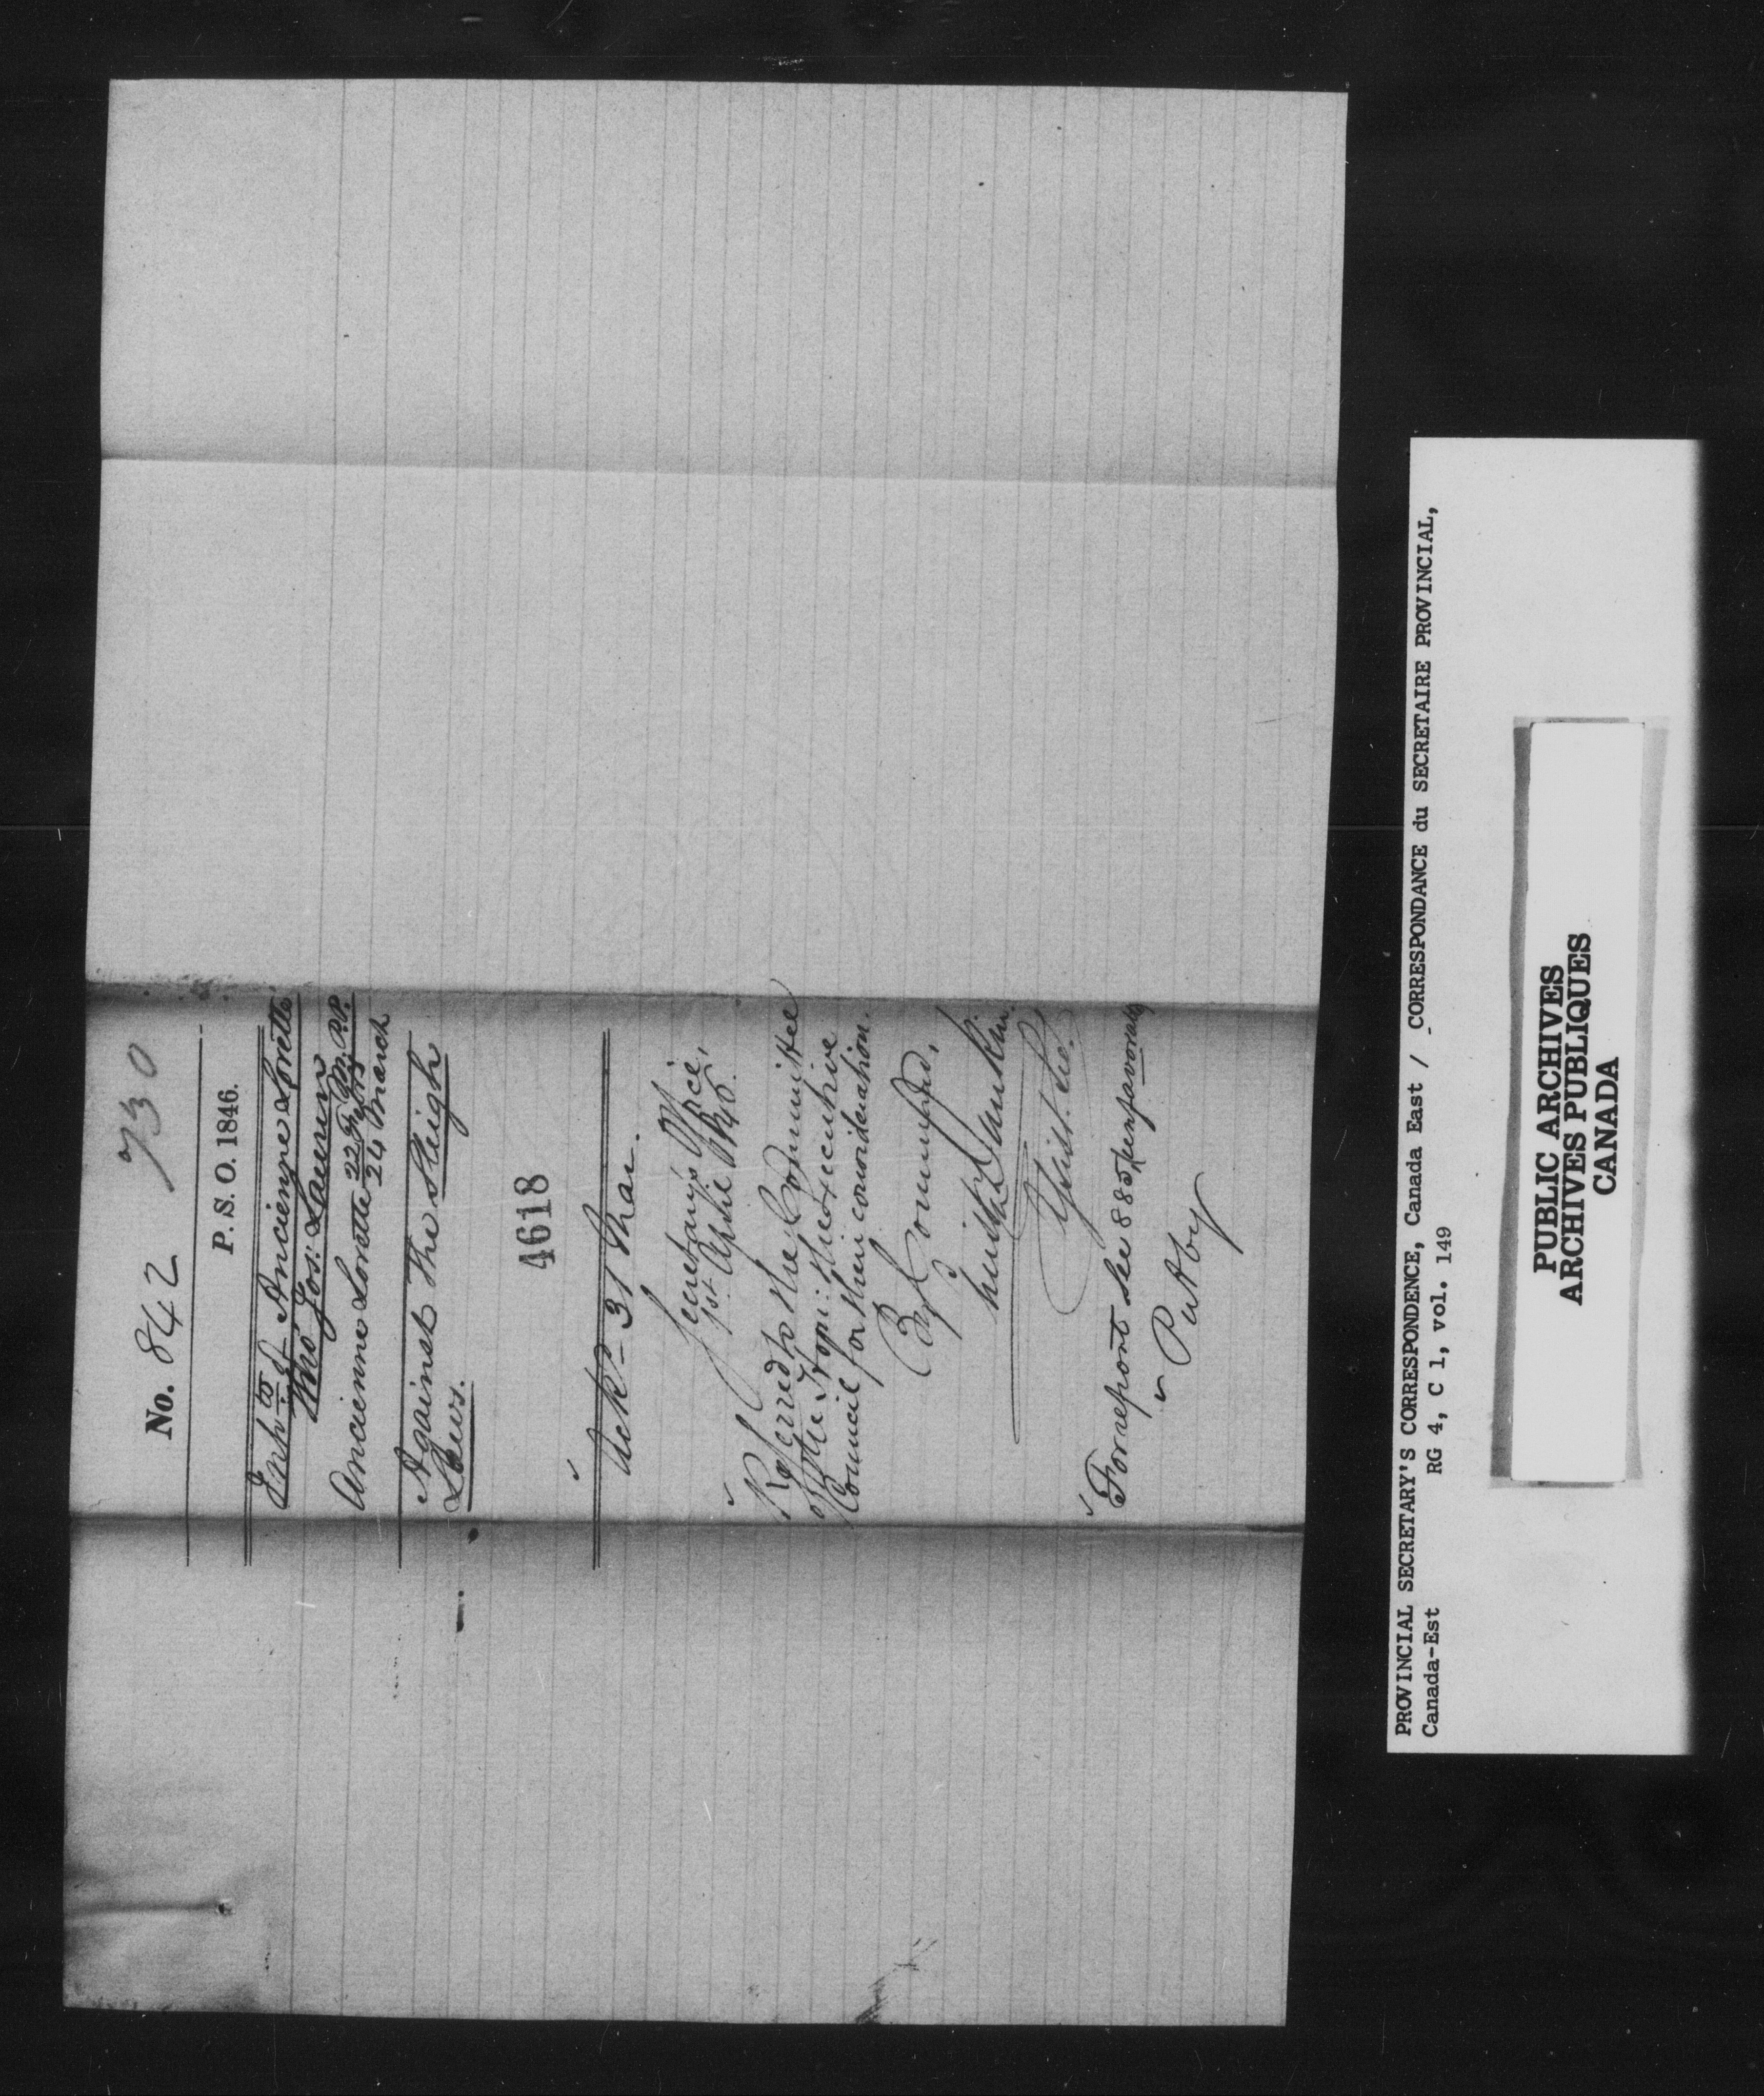 730
No. 842
P. S. O. 1846.
Inhts of Ancienne Lorette
Thro' Jos: Laurin
M.P.P.
Ancienne Lorette 22 Feby
24 March
Against the Sleigh
Laws.
4618
Ackd 31 Mar.
Secretary's Office,
1st April 1846.
Referred to the Committee
of the Hon: the Executive
Council for their consideration.
By Command,
Assist. Sec.
For report See 885 unfavorably
Put by
PROVINCIAL SECRETARY'S CORRESPONDENCE, Canada East / CORRESPONDANCE du SECRETAIRE PROVINCIAL,
Canada-Est RG 4, C 1, vol. 149
PUBLIC ARCHIVES
ARCHIVES PUBLIQUES
CANADA